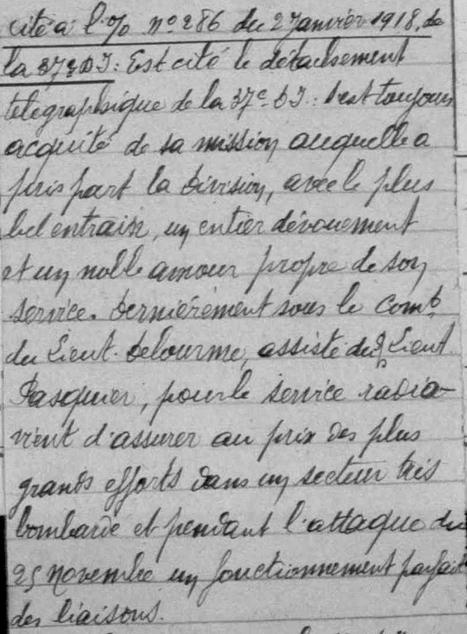 cité à l'o/o n° 286 du 27 janvier 1918, de
la 37e DI : Est cité le détachement
télégraphique de la 37e DI : s'est toujours
acquité de sa mission auquelle a
pris part la Division, avec le plus
bel entrain, un entier dévouement
et un noble amour propre de son
service. Dernièrement sous le comt
du Lieut. Delourme, assisté du Lieut
Pasquier, pour le service radio-
vient d'assurer au prix des plus
grands efforts dans un secteur très
bombardé et pendant l'attaque du
25 novembre un fonctionnement parfait
des liaisons.